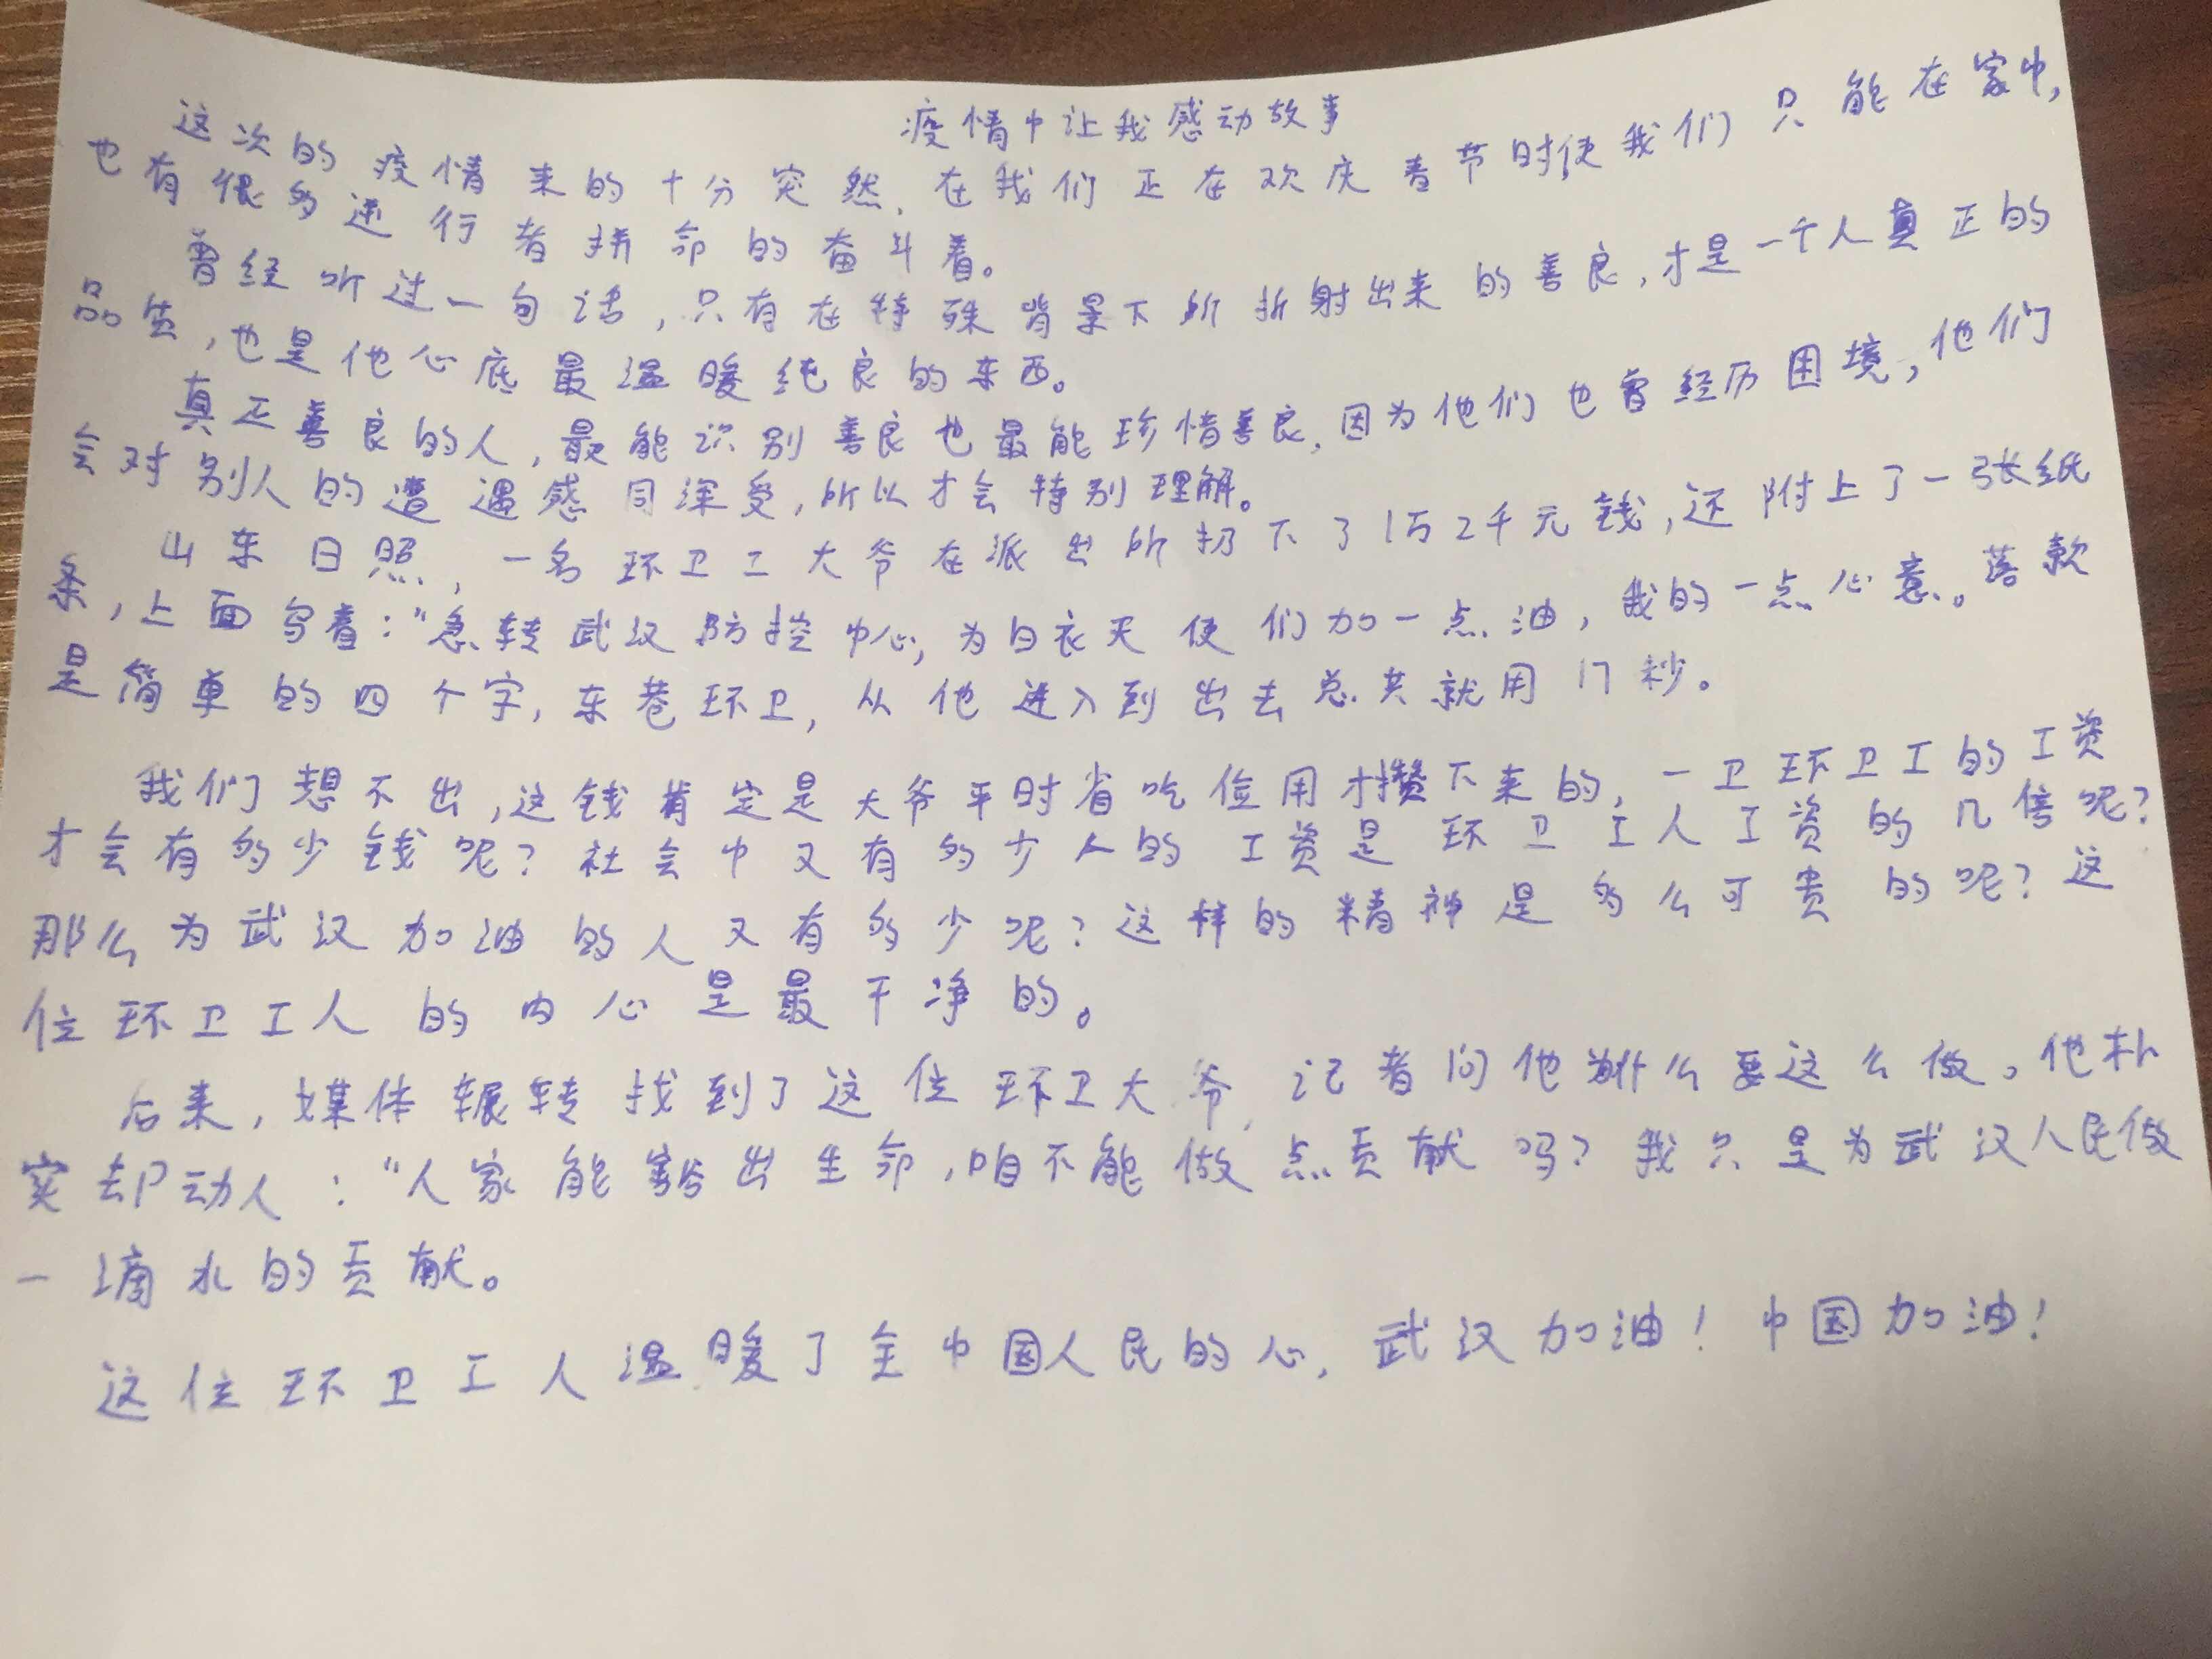 疫情中让我感动故事
这次的疫情来的十分突然,在我们正在欢庆春节时使我们只能在家中,
也有很多逆行者拼命的奋斗着。
曾经听过一句话,只有在特殊背景下所折射出来的善良,才是一个人真正的
品质,也是他心底最温暖纯良的东西。
真正善良的人,最能识别善良也最能珍惜善良,因为他们也曾经历困境,他们
会对别人的遭遇感同深受,所以才会特别理解。
山东日照,一名环卫工大爷在派出所扔下了1万2千元钱,还附上了一张纸
条,上面写着:“急转武汉防控中心,为白衣天使们加一点油,我的一点心意。落款
是简单的四个字,东巷环卫,从他进入到出去总共就用17秒。
我们想不出,这钱肯定是大爷平时省吃俭用才攒下来的,一卫环卫工的工资
才会有多少钱呢?社会中又有多少人的工资是环卫工人工资的几倍呢?
那么为武汉加油的人又有多少呢?这样的精神是多么可贵的呢?这
位环卫工人的内心是最干净的。
后来,媒体辗转找到了这位环卫大爷,记者问他为什么要这么做。他朴
实却动人:“人家能豁出生命,咱不能做点贡献吗?我只是为武汉人民做
一滴水的贡献。
这位环卫工人温暖了全中国人民的心,武汉加油!中国加油!